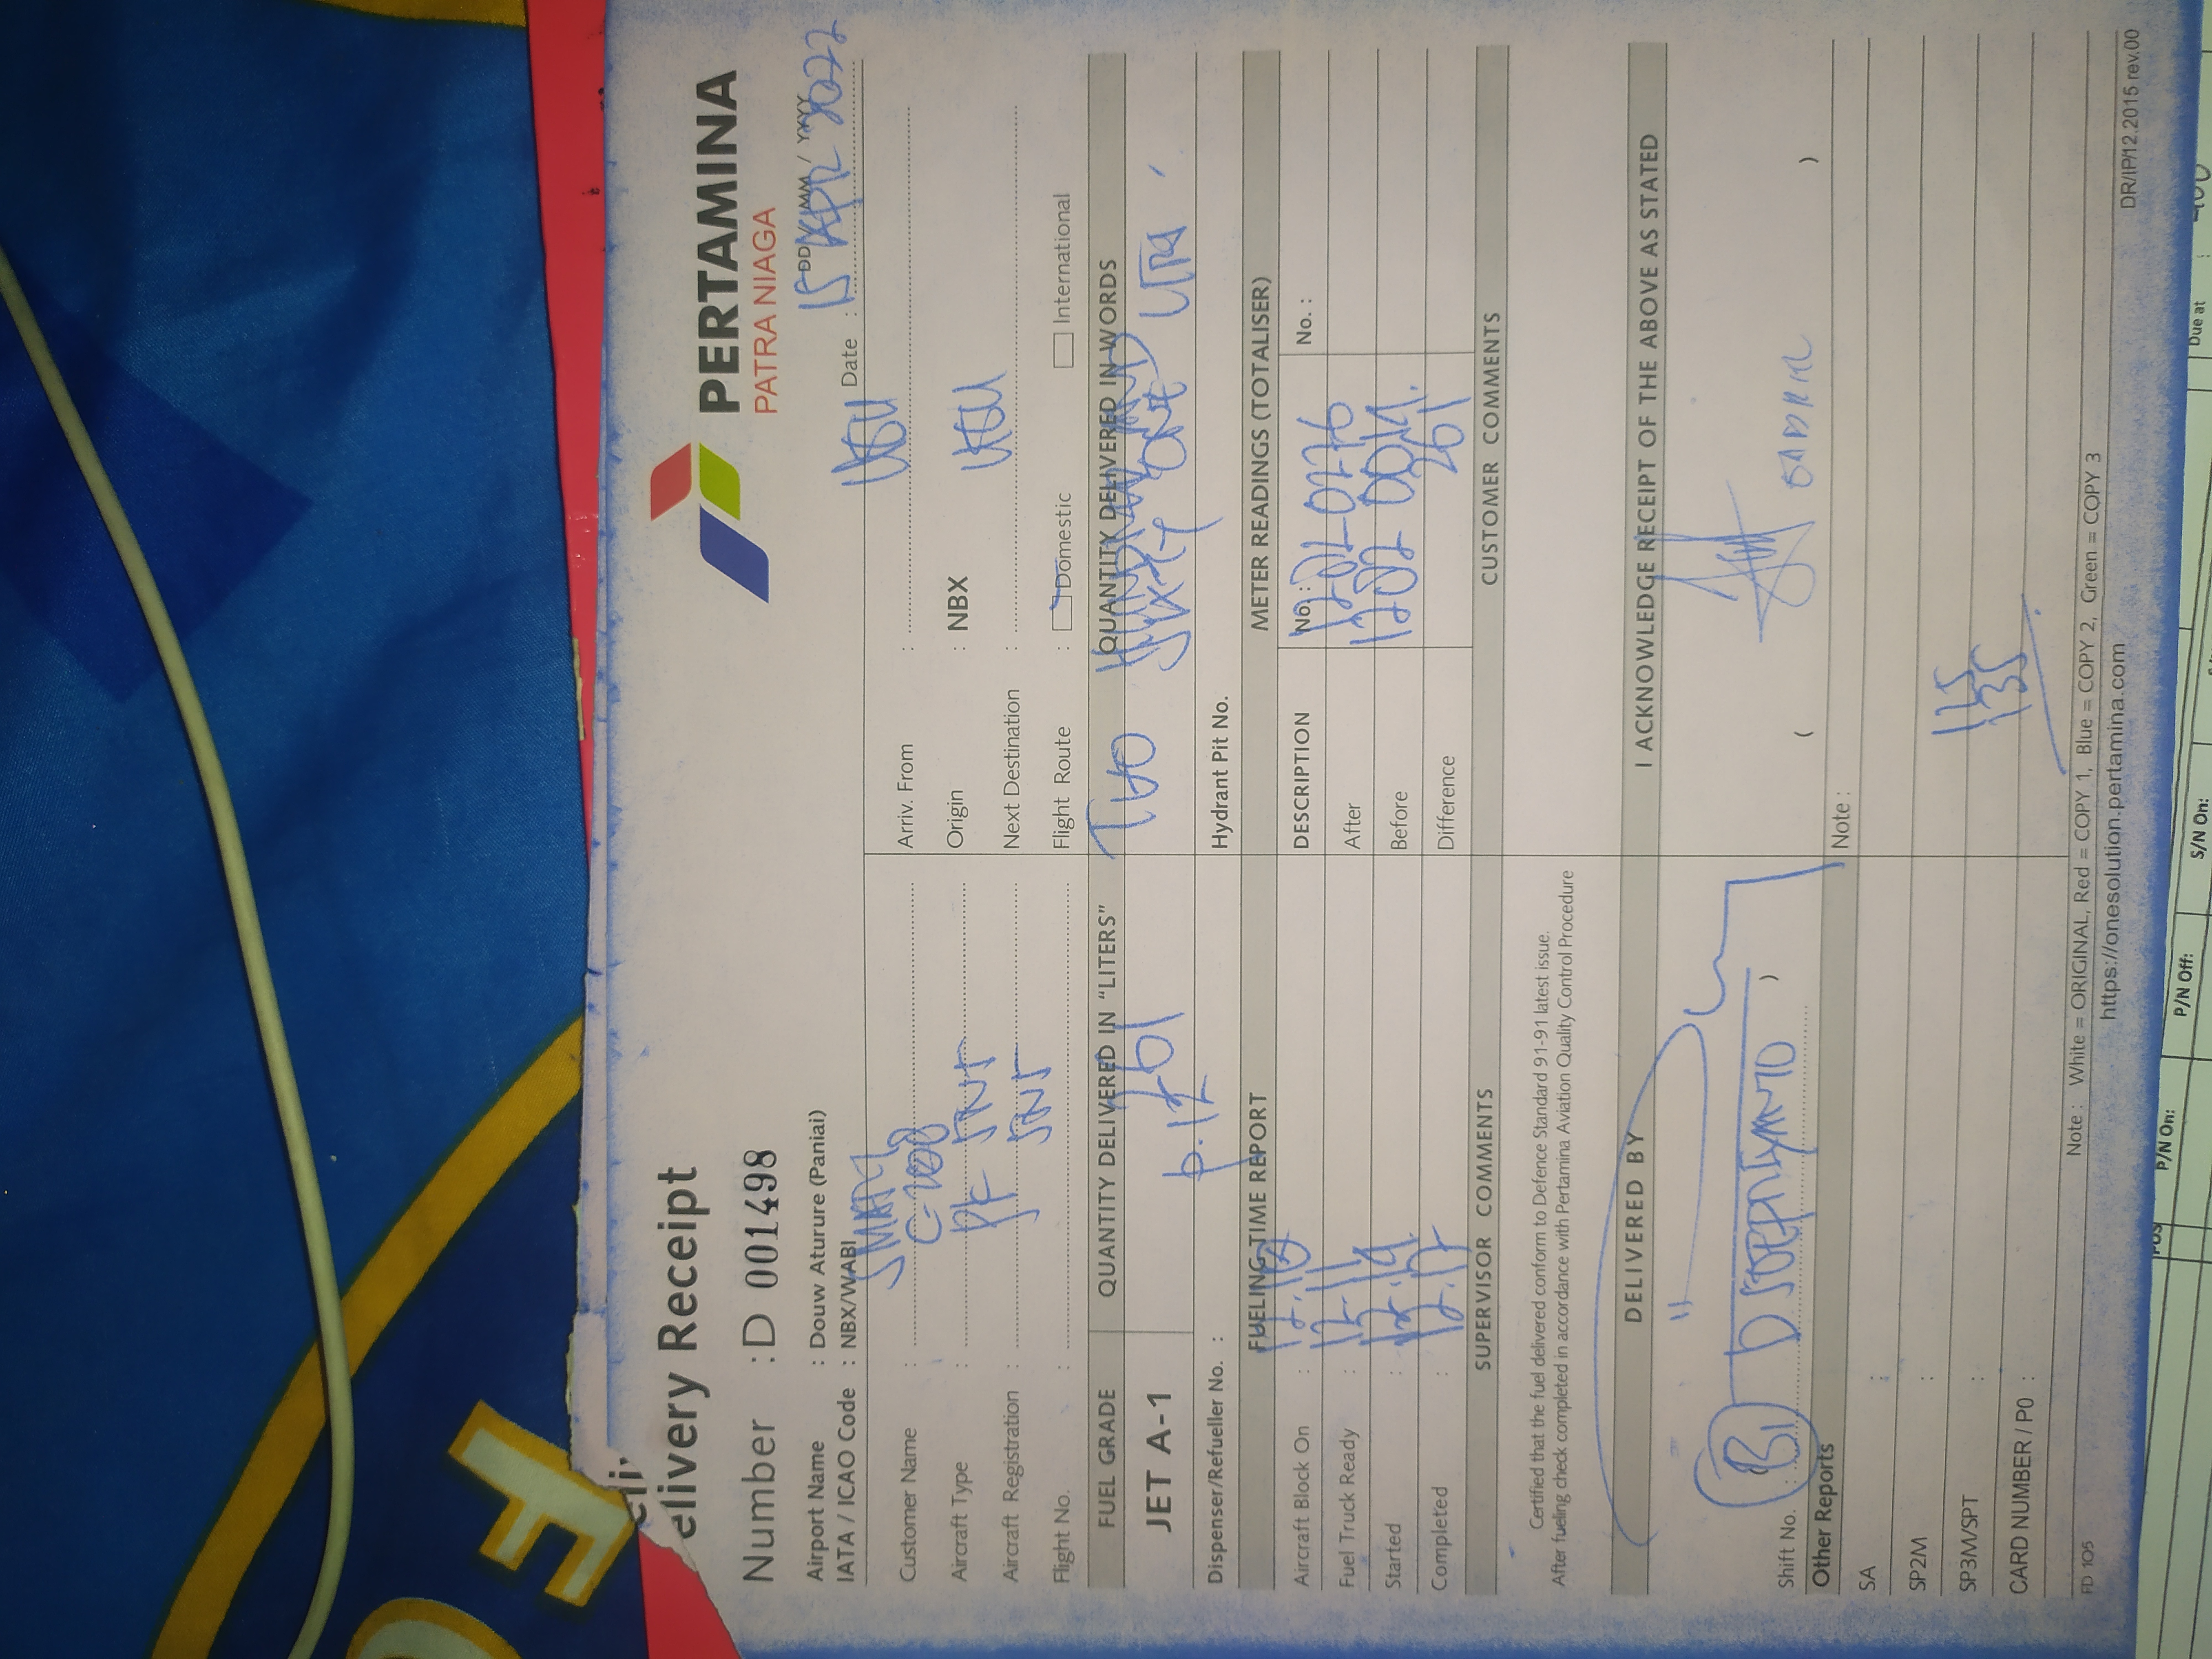 Delivery Receipt
PERTAMINA
PATRA NIAGA
Number : D 001498
DD / MM / YYYY
Date : 15 APR 2022
Airport Name : Douw Aturure (Paniai)
IATA / ICAO Code : NBX/WABI
Customer Name : SMART
Aircraft Type : C-208
Aircraft Registration : PK SNT
Flight No. : SNT
Arriv. From :
Origin : NBX
Next Destination :
Flight Route : Domestic International
FUEL GRADE QUANTITY DELIVERED IN "LITERS" QUANTITY DELIVERED IN WORDS
JET A-1 261 TWO HUNDRED SIXTY ONE
Dispenser/Refueller No. : Hydrant Pit No.
FUELING TIME REPORT METER READINGS (TOTALISER)
Aircraft Block On : 12.10 DESCRIPTION No. : No. :
Fuel Truck Ready : 12.11 After
Started : 12.14 Before
Completed : 12.17 Difference 261
SUPERVISOR COMMENTS CUSTOMER COMMENTS
Certified that the fuel delivered conform to Defence Standard 91-91 latest issue.
After fueling check completed in accordance with Pertamina Aviation Quality Control Procedure
DELIVERED BY I ACKNOWLEDGE RECEIPT OF THE ABOVE AS STATED
Shift No. :
Other Reports Note :
SA :
SP2M :
SP3M/SPT :
CARD NUMBER / PO :
115
135
FD 105
Note : White = ORIGINAL, Red = COPY 1, Blue = COPY 2, Green = COPY 3
https://onesolution.pertamina.com
DR/IP/12.2015 rev.00
POS
P/N On:
P/N Off:
S/N On:
Due at :